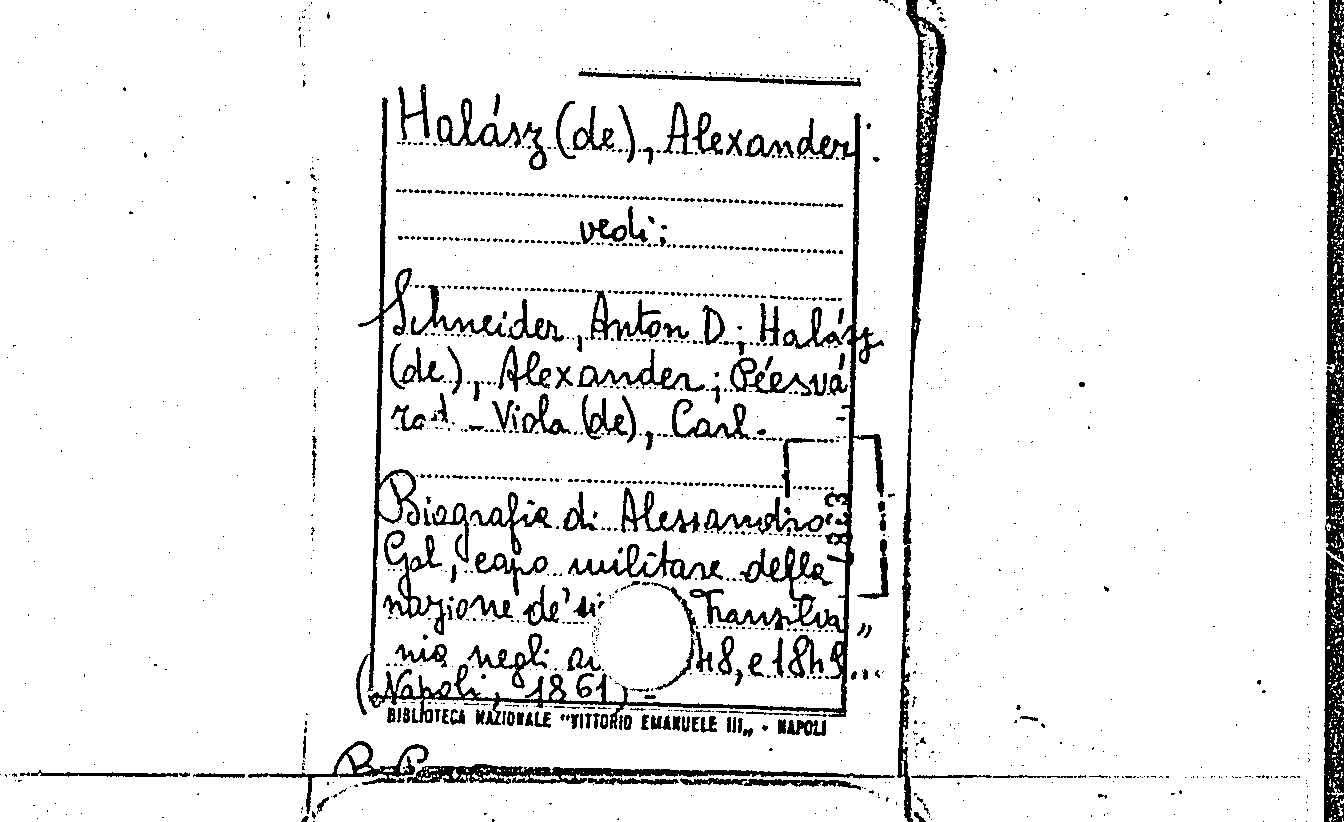 Halász (de), Alexander.
vedi:
Schneider, Anton D; Halász
(de), Alexander; Péesvá
rad - Viola (de), Carl.
Biografia di Alessandro
Gal, capo militare della
nazione de' Transilva„
nia negli 48, e 1849...
(Napoli, 1861) -
BIBLIOTECA NAZIONALE "VITTORIO EMANUELE III„ - NAPOLI